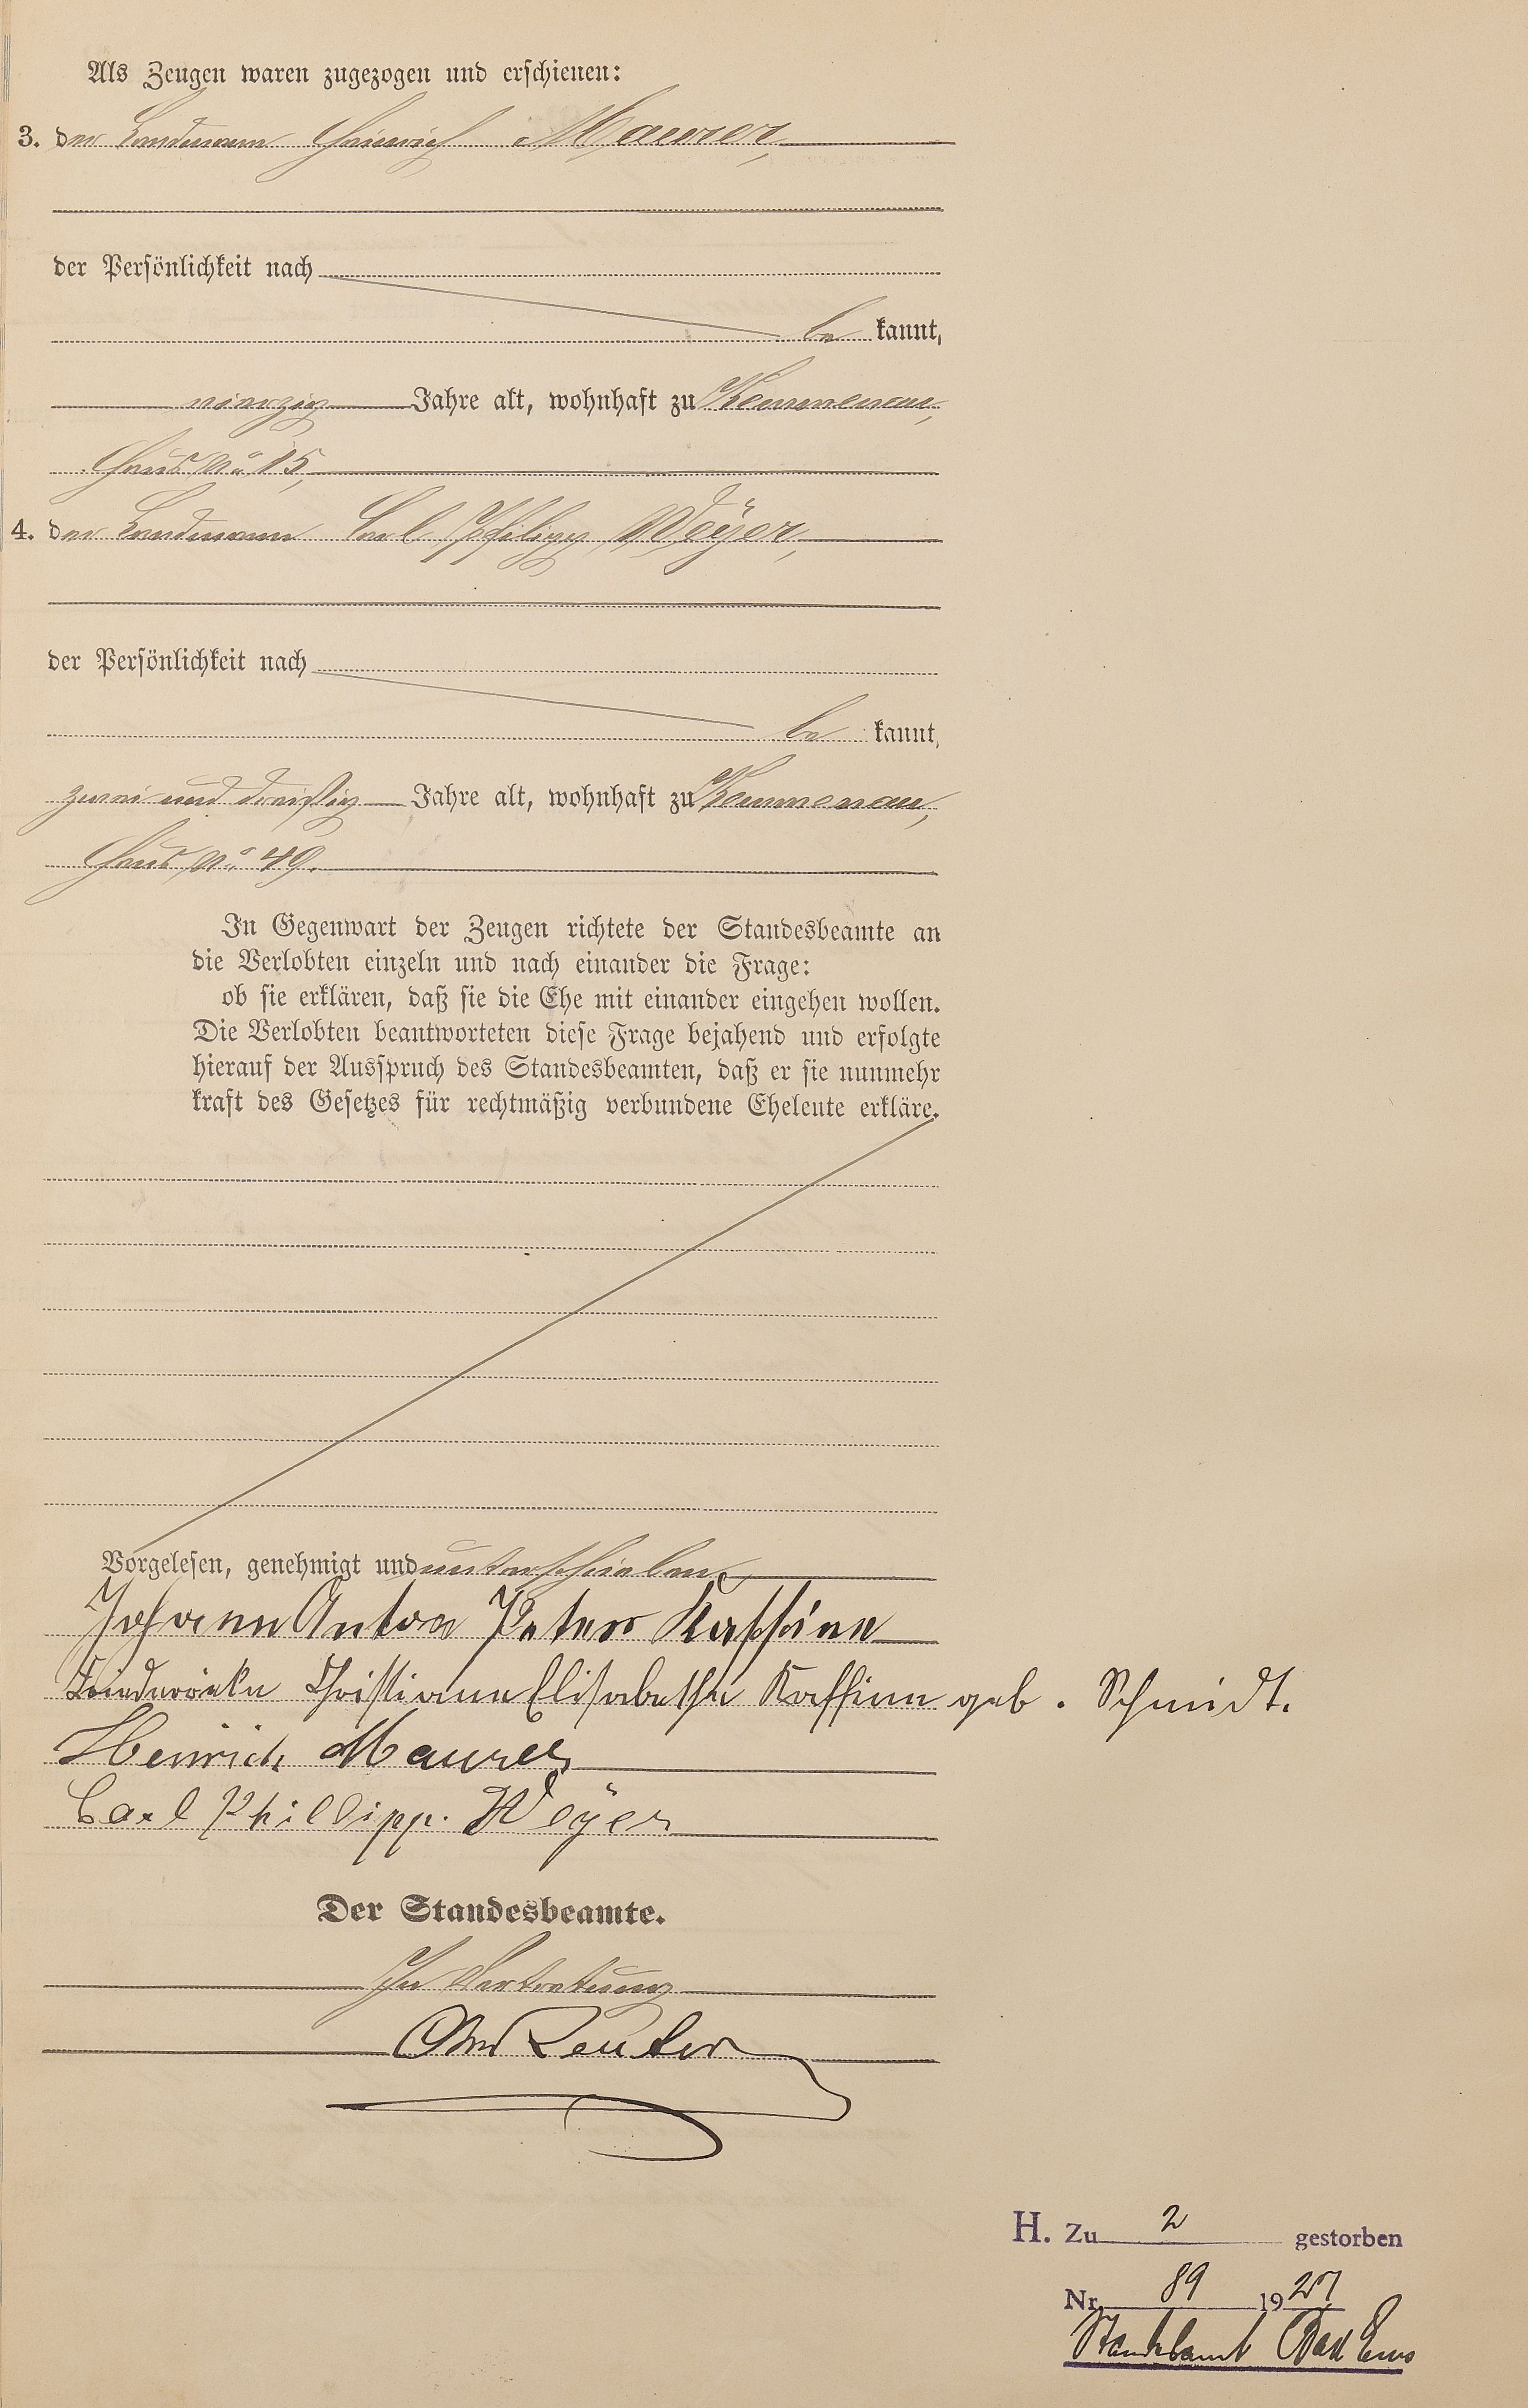 Als Zeugen waren zugezogen und erschienen:
3. der Landmann Heinrich Maurer,
der Persönlichkeit nach
be kannt,
vierzig Jahre alt, wohnhaft zu Kemmenau,
Haus No. 15,
4. der Landmann Carl Philipp Weÿer,
der Persönlichkeit nach
be kannt,
zwei und dreißig Jahre alt, wohnhaft zu Kemmenau,
Haus No. 49.
In Gegenwart der Zeugen richtete der Standesbeamte an
die Verlobten einzeln und nach einander die Frage:
ob sie erklären, daß sie die Ehe mit einander eingehen wollen.
Die Verlobten beantworteten diese Frage bejahend und erfolgte
hierauf der Ausspruch des Standesbeamten, daß er sie nunmehr
kraft des Gesetzes für rechtmäßig verbundene Eheleute erkläre.
Vorgelesen, genehmigt und unterschrieben
Johann Anton Peter Kaffine
Friederike Christiane Elisabetha Kaffine geb. Schmidt.
Heinrich Maurer
Carl Phillipp. Weÿer
Der Standesbeamte.
In Vertretung
Reuter
H. Zu 2 gestorben
Nr. 89 1927
Standesamt Bad Ems